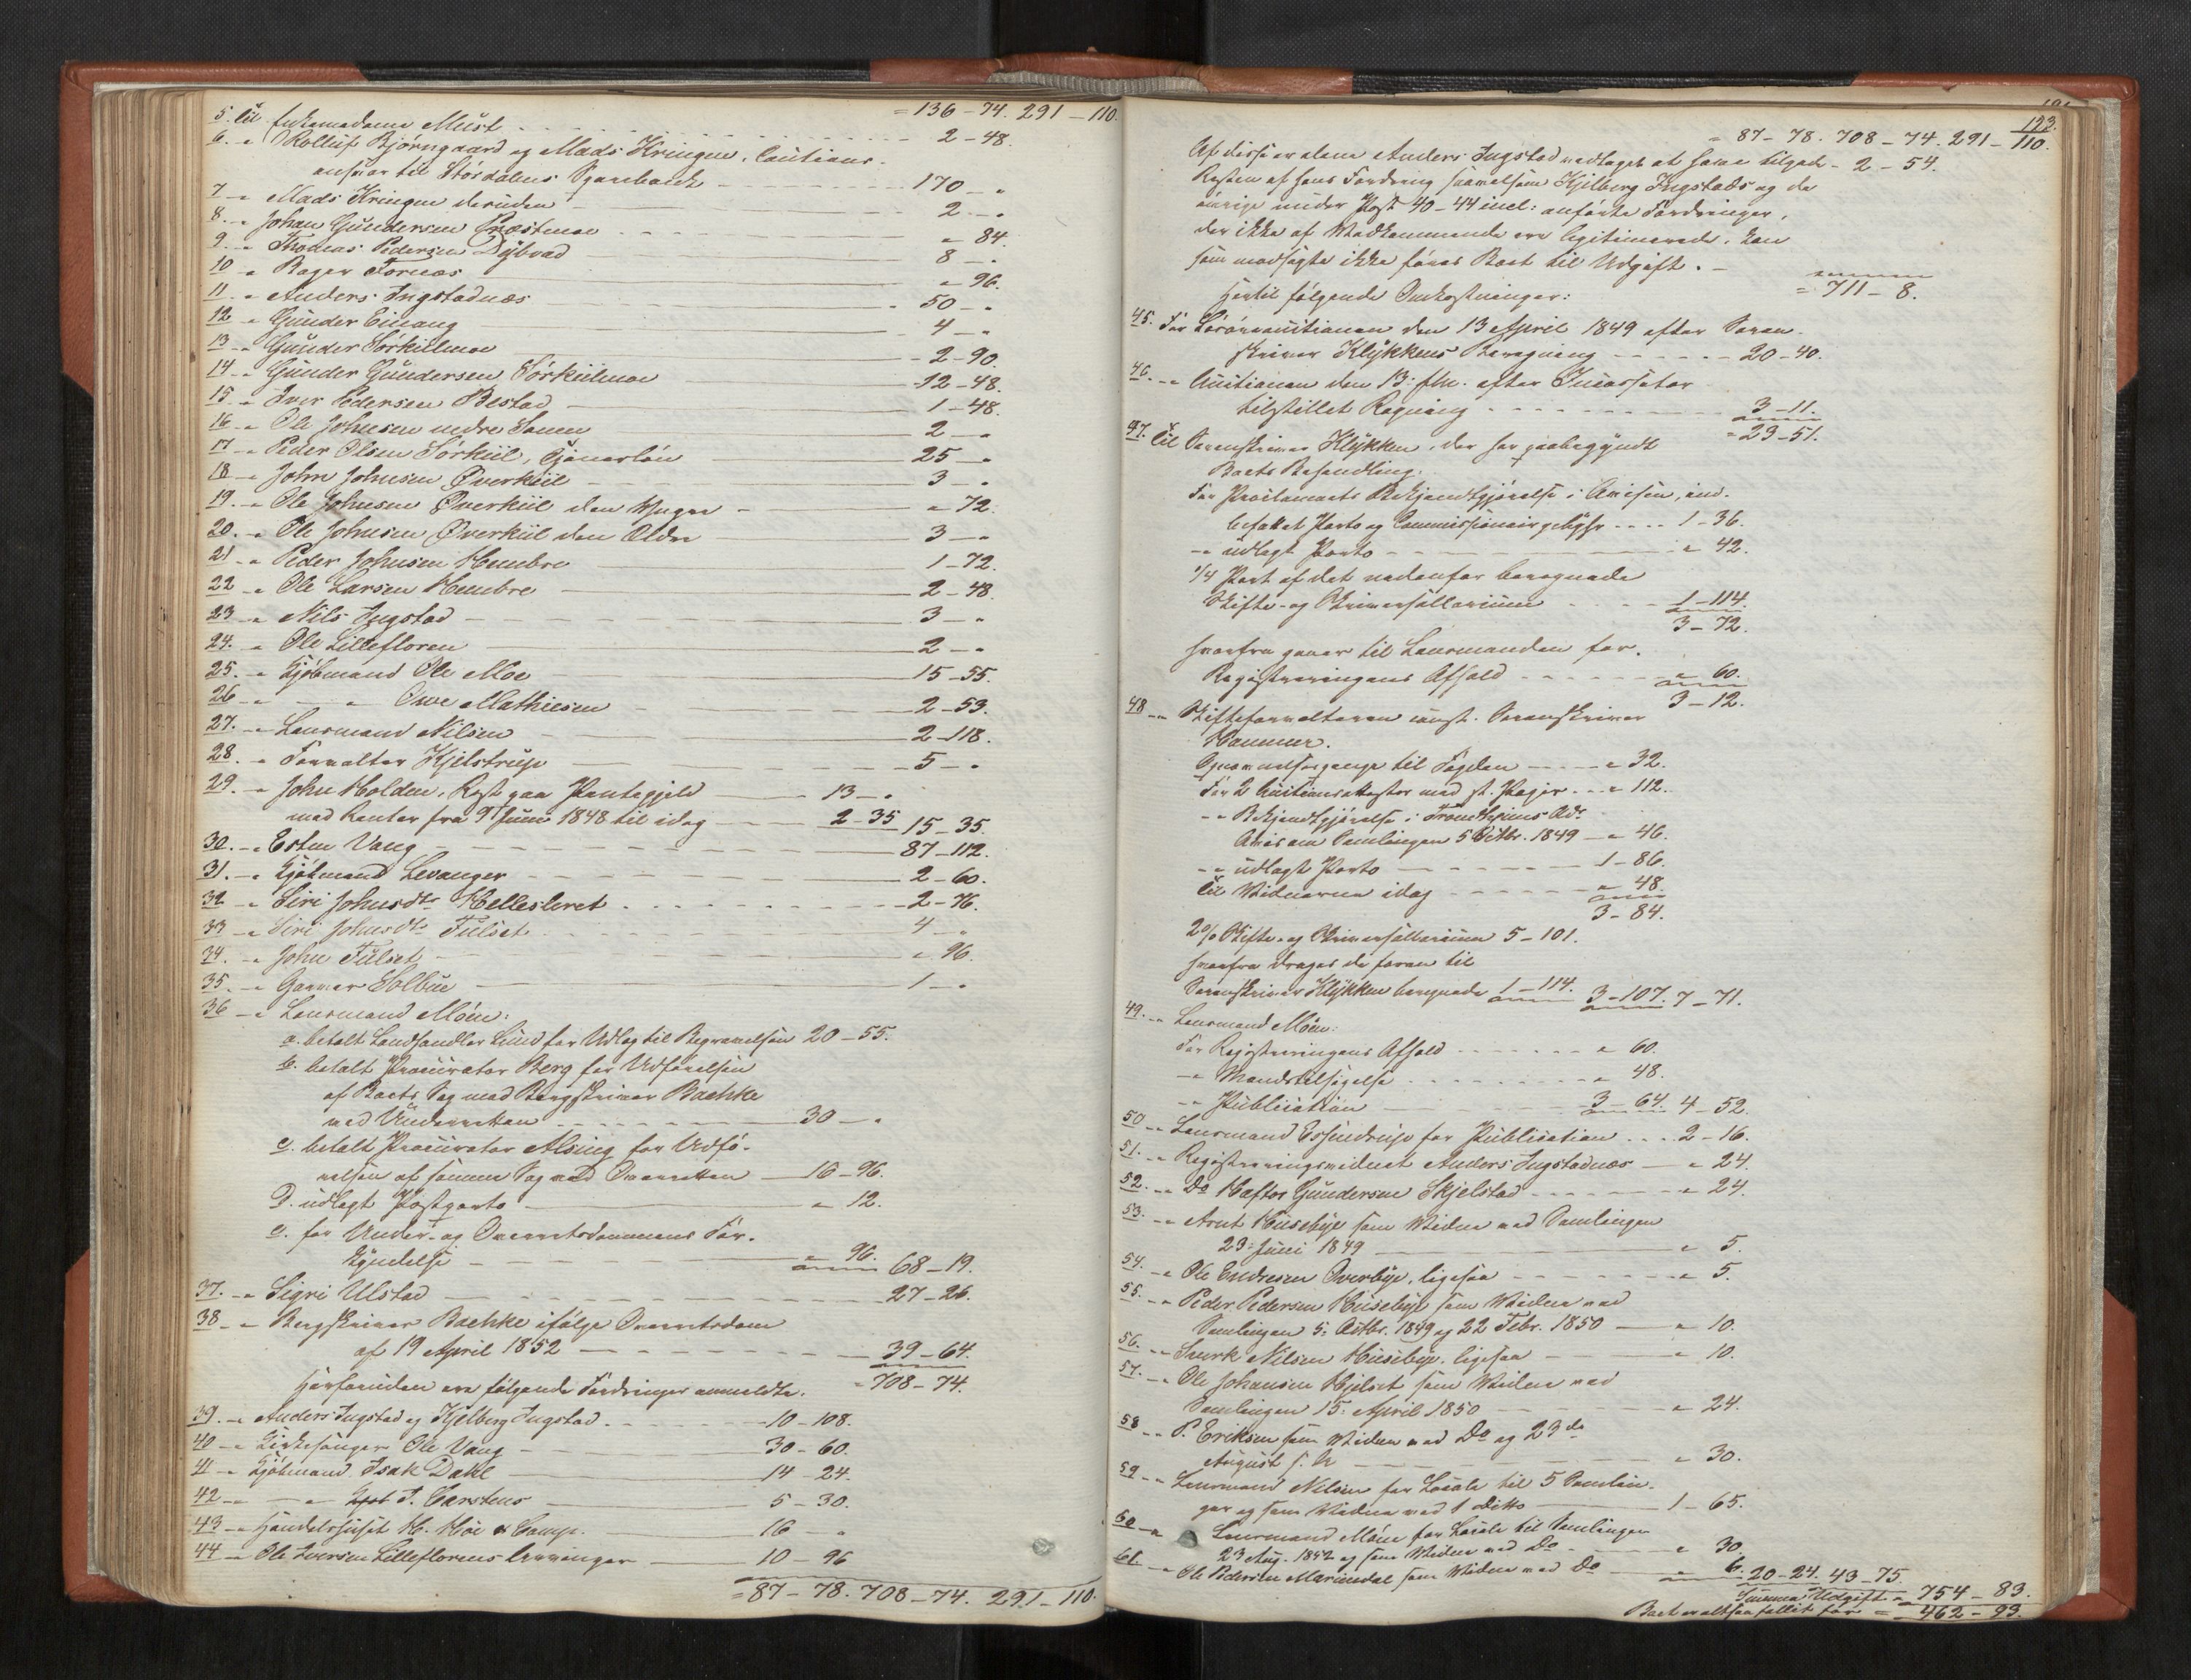 = 136 - 74. 291 - 110.
5. til Enkemadame Must - 2 - 48.
6. - " Rolluf Bjørngaard og Mads Kringen, Cautions-
ansvar til Størdalens Sparebank - 170 - "
7 - " Mads Kringen desuden - 2 - "
8. - " Johan Gundersen Præstmoe - " 84.
9. - " Thomas Pedersen Dybvad - 8 - "
10 - " Roger Fornæs - " 96.
11. - " Anders Ingstadnæs - 50 - "
12 - " Gunder Einang - 4 - "
13 - " Gunder Sørkiilmoe - 2 - 90.
14 - " Gunder Gundersen Sørkiilmoe - 12 - 48.
15 - " Iver Pedersen Bestad - 1 - 48.
16 - " Ole Johnsen nedre Sonen - 2 - "
17 - " Peder Olsen Sørkiil, Tjenerløn - 25 - "
18 - " John Johnsen Øverkiil - 3 - "
19. - " Ole Johnsen Øverkiil den Yngre - " 72.
20. - " Ole Johnsen Øverkiil den Ældre - 3 - "
21 - " Peder Johnsen Hembre - 1 - 72.
22 - " Ole Larsen Hembre - 2 - 48.
23 - " Nils Ingstad - 3 - "
24. - " Ole Lillefloren - 2 - "
25. - " Kjøbmand Ole Moe - 15 - 55.
26 - " - " Owe Mathiesen - 2 - 53.
27. - " Lensmand Nilsen - 2 - 118.
28. - " Forvalter Hjelstrup - 5 - "
29. - " John Holden, Rest paa Pantegjeld - 13 - "
med Renter fra 9 Juni 1848 til idag - 2 - 35 15 - 35.
30. - " Esten Vang - 87 - 112.
31. - " Kjøbmand Levanger - 2 - 60.
32 - " Siri Johnsdtr Hellesleret - 2 - 76.
33 - " Siri Johnsdtr Fulset - 4 - "
34. - " John Fulset - " 96.
35. - " Garver Solbue - 1 - "
36 - " Lensmand Møin:
a. betalt Landhandler Lund for Udlæg til Begravelsen 20 - 55.
b. betalt Procurator Berg for Udførelsen
af Boets Sag mod Bergskriver Bachke
ved Underretten - 30 - "
c. betalt Procurator Alsing for Udfø-
relsen af samme Sag ved Overretten - 16 - 96.
D. udlagt Postporto - " 12.
e. for Under- og Overretsdommens For-
kyndelse - " 96. 68 - 19.
37. - " Sigri Ulstad - 27 - 26.
38 - " Bergskriver Bachke ifølge Overretsdom
af 19 April 1852 - 39 - 64.
Herforuden ere følgende Fordringer anmeldte. = 708 - 74.
39. - " Anders Ingstad og Kjelberg Ingstad. 10 - 108.
40 - " Kirkesanger Ole Vang - 30 - 60.
41 - " Kjøbmand Isak Dahl - 14 - 24.
42 - " - " J. Carstens - 5 - 30.
43 - " Handelshuset H. Høe & Comp. - 16 - "
44 - " Ole Iversen Lilleflorens Arvinger - 10 - 96
= 87 - 78. 708 - 74. 291 - 110.
123.
= 87 - 78. 708 - 74. 291 - 110.
Af disse er alene Anders Ingstad vedtaget at have tilgode - 2 - 54.
Resten af hans Fordring saavelsom Kjelberg Ingstads og de
øvrige under Post 40 - 44 incl: anførte Fordringer,
der ikke af Vedkommende ere legitimerede, kan
som modsagte ikke føres Boet til Udgift. -
= 711 - 8.
Hertil følgende Omkostninger:
45. For Løsøreauctionen den 13 April 1849 efter Soren-
skriver Klykkens Beregning - 20 - 40.
46. - " Auctionen den 13: f.M. efter Incassator
tilstillet Regning - 3 - 11.
= 23 - 51.
47. til Sorenskriver Klykken, der har paabegyndt
Boets Behandling.
For Proclamaets Bekjendtgjørelse i Avisen, ind-
befattet Porto og Commissionairgebyhr - 1 - 36.
- " udlagt Porto - " 42.
1/4 Part af det nedenfor beregnede
Skifte- og Skriversallarium - 1 - 114.
3 - 72.
hvorfra gaaer til Lensmanden for
Registreringens Afhold - " 60.
3 - 12.
48 - " Skifteforvalteren const. Sorenskriver
Hammer.
For 2 Auctionsattester med st. Papir - " 112.
- " Bekjendtgjørelse i Trondhjems Ad.
Avis om Samlingen 5 Octbr. 1849 - " 46.
- " udlagt Porto - 1 - 86.
til Vidnerne idag - " 48.
3 - 84.
2% Skifte- og Skriversallarium 5 - 101.
hvorfra drages de foran til
Sorenskriver Klykken beregnede 1 - 114. 3 - 107. 7 - 71.
49. - " Lensmand Møin:
For Registreringens Afhold - " 60.
- " Mandstilsigelse - " 48.
- " Publication - 3 - 64. 4 - 52.
50 - " Lensmand Essendrup for Publication - 2 - 16.
51. - " Registreringsvidnet Anders Ingstadnæs - " 24.
52. - " Do Haftor Gundersen Skjelstad - " 24.
53. - " Arnt Husebye som Vidne ved Samlingen
23: Juni 1849 - " 5.
54. - " Ole Endresen Overbye, ligesaa - " 5.
55. - " Peder Pedersen Husebye som Vidne ved
Samlingen 5: Octbr. 1849 og 22 Febr. 1850 - " 10.
56. - " Sverk Nilsen Husebye, ligesaa - " 10.
57. - " Ole Johansen Hjelset som Vidne ved
Samlingen 15: April 1850 - " 24.
58 - " P. Eriksen som Vidne ved Do og 23de
August s. A - " 30.
59 - " Lensmand Nilsen for Locale til 5 Samlin-
ger og som Vidne ved 1 ditto - 1 - 65.
60 - " Lensmand Møin for Locale til Samlingen
23 Aug. 1852 og som Vidne ved Do - " 30.
61. - " Ole Pedersen Mariendal som Vidne ved Do - " 6. 20 - 24. 43 - 75.
Summa Udgift = 754 - 83.
Boet er altsaa fallit for = 462 - 93.